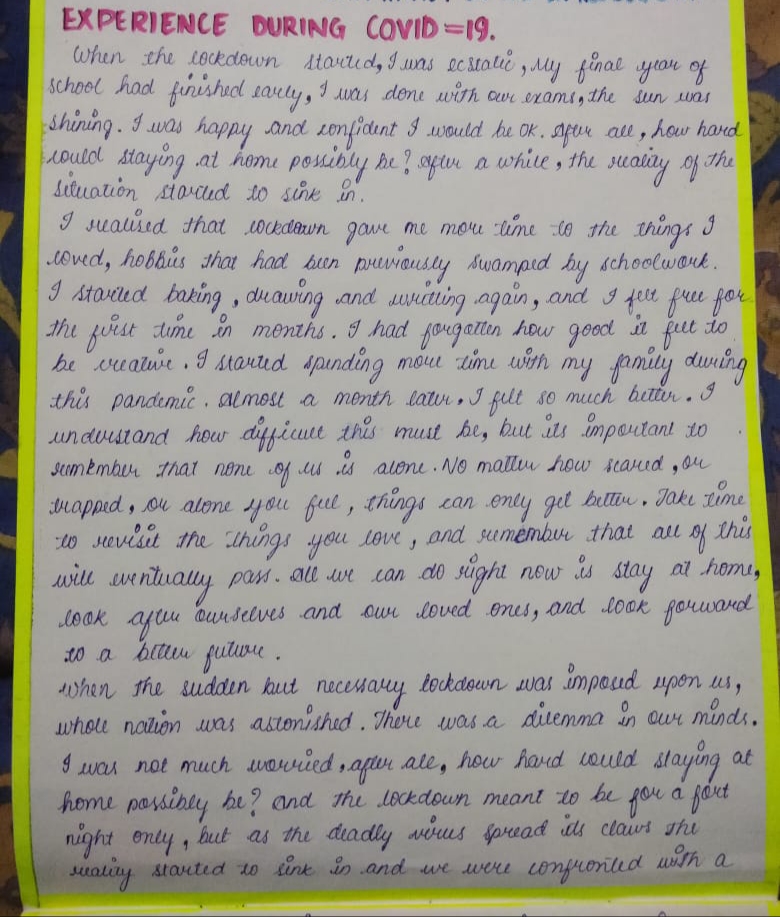 EXPERIENCE DURING COVID=19.
When the lockdown started, I was ecstatic, My final year of
school had finished early, I was done with our exams, the sun was
shining. I was happy and confident I would be OK. After all, how hard
could staying at home possibly be? After a while, the reality of the
situation started to sink in.
I realised that lockdown gave me more time to the things I
loved, hobbies that had been previously swamped by schoolwork.
I started baking, drawing and writting again, and I felt free for
the first time in months. I had forgotten how good it felt to
be creative. I started spending more time with my family during
this pandemic. Almost a month later. I felt so much better. I
understand how difficult this must be, but its important to
remember that none of us is alone. No matter how scared, or
trapped, or alone you feel, things can only get better. Take time
to revisit the things you love, and remember that all of this
will eventually pass. All we can do right now is stay at home,
look after ourselves and our loved ones, and look forward
to a better future.
When the sudden but necessary lockdown was imposed upon us,
whole nation was astonished. There was a dilemma in our minds.
I was not much worried, after all, how hard could staying at
home possibly be? And the lockdown meant to be for a fort
night only, but as the deadly virus spread its claws the
reality started to sink in and we were confronted with a